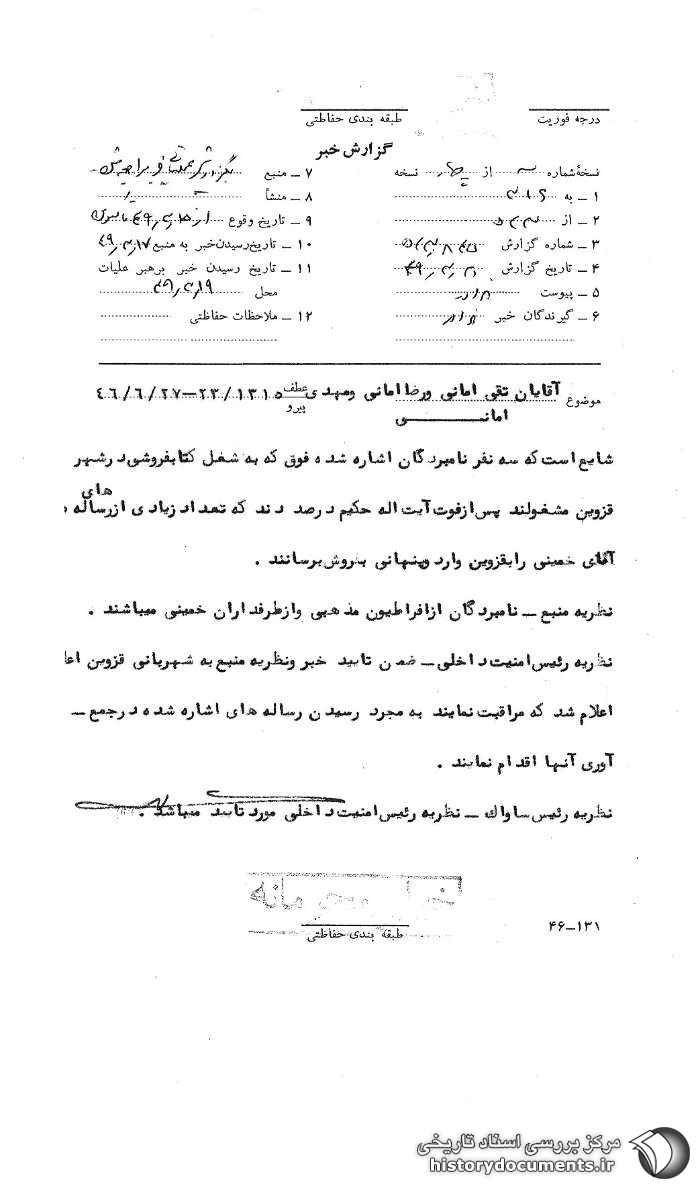 درجه فوریت
طبقه بندی حفاظتی
گزارش خبر
نسخهٔ شماره از نسخه
۱ ـ به
۲ ـ از
۳ ـ شماره گزارش
۴ ـ تاریخ گزارش
۵ ـ پیوست
۶ ـ گیرندگان خبر
۷ ـ منبع
۸ ـ منشأ
۹ ـ تاریخ وقوع
۱۰ ـ تاریخ رسیدن خبر به منبع ۴۹٫۳٫۱۷
۱۱ ـ تاریخ رسیدن خبر برهبر عملیات
محل ۴۹٫۳٫۱۹
۱۲ ـ ملاحظات حفاظتی
موضوع آقایان تقی امانی ورضا امانی ومهدی
امانی
عطف ۲۳/۱۳۱۵ـ۴۶/۶/۲۷
پیرو
شایع است که سه نفر نامبردگان اشاره شده فوق که به شغل کتابفروشی در شهر
قزوین مشغولند پس از فوت آیت اله حکیم در صدد دند که تعداد زیادی از رساله های
آقای خمینی را بقزوین وارد وپنهانی بفروش برسانند .
نظریه منبع ـ نامبردگان از افراطیون مذهبی واز طرفداران خمینی میباشند .
نظریه رئیس امنیت داخلی ـ ضمن تایید خبر ونظریه منبع به شهربانی قزوین اعلا
اعلام شد که مراقبت نمایند به مجرد رسیدن رساله های اشاره شده در جمع ـ
آوری آنها اقدام نمایند .
نظریه رئیس ساواك ـ نظریه رئیس امنیت داخلی مورد تایید میباشد .
طبقه بندی حفاظتی
۴۶ـ۱۳۱
مرکز بررسی اسناد تاریخی
historydocuments.ir